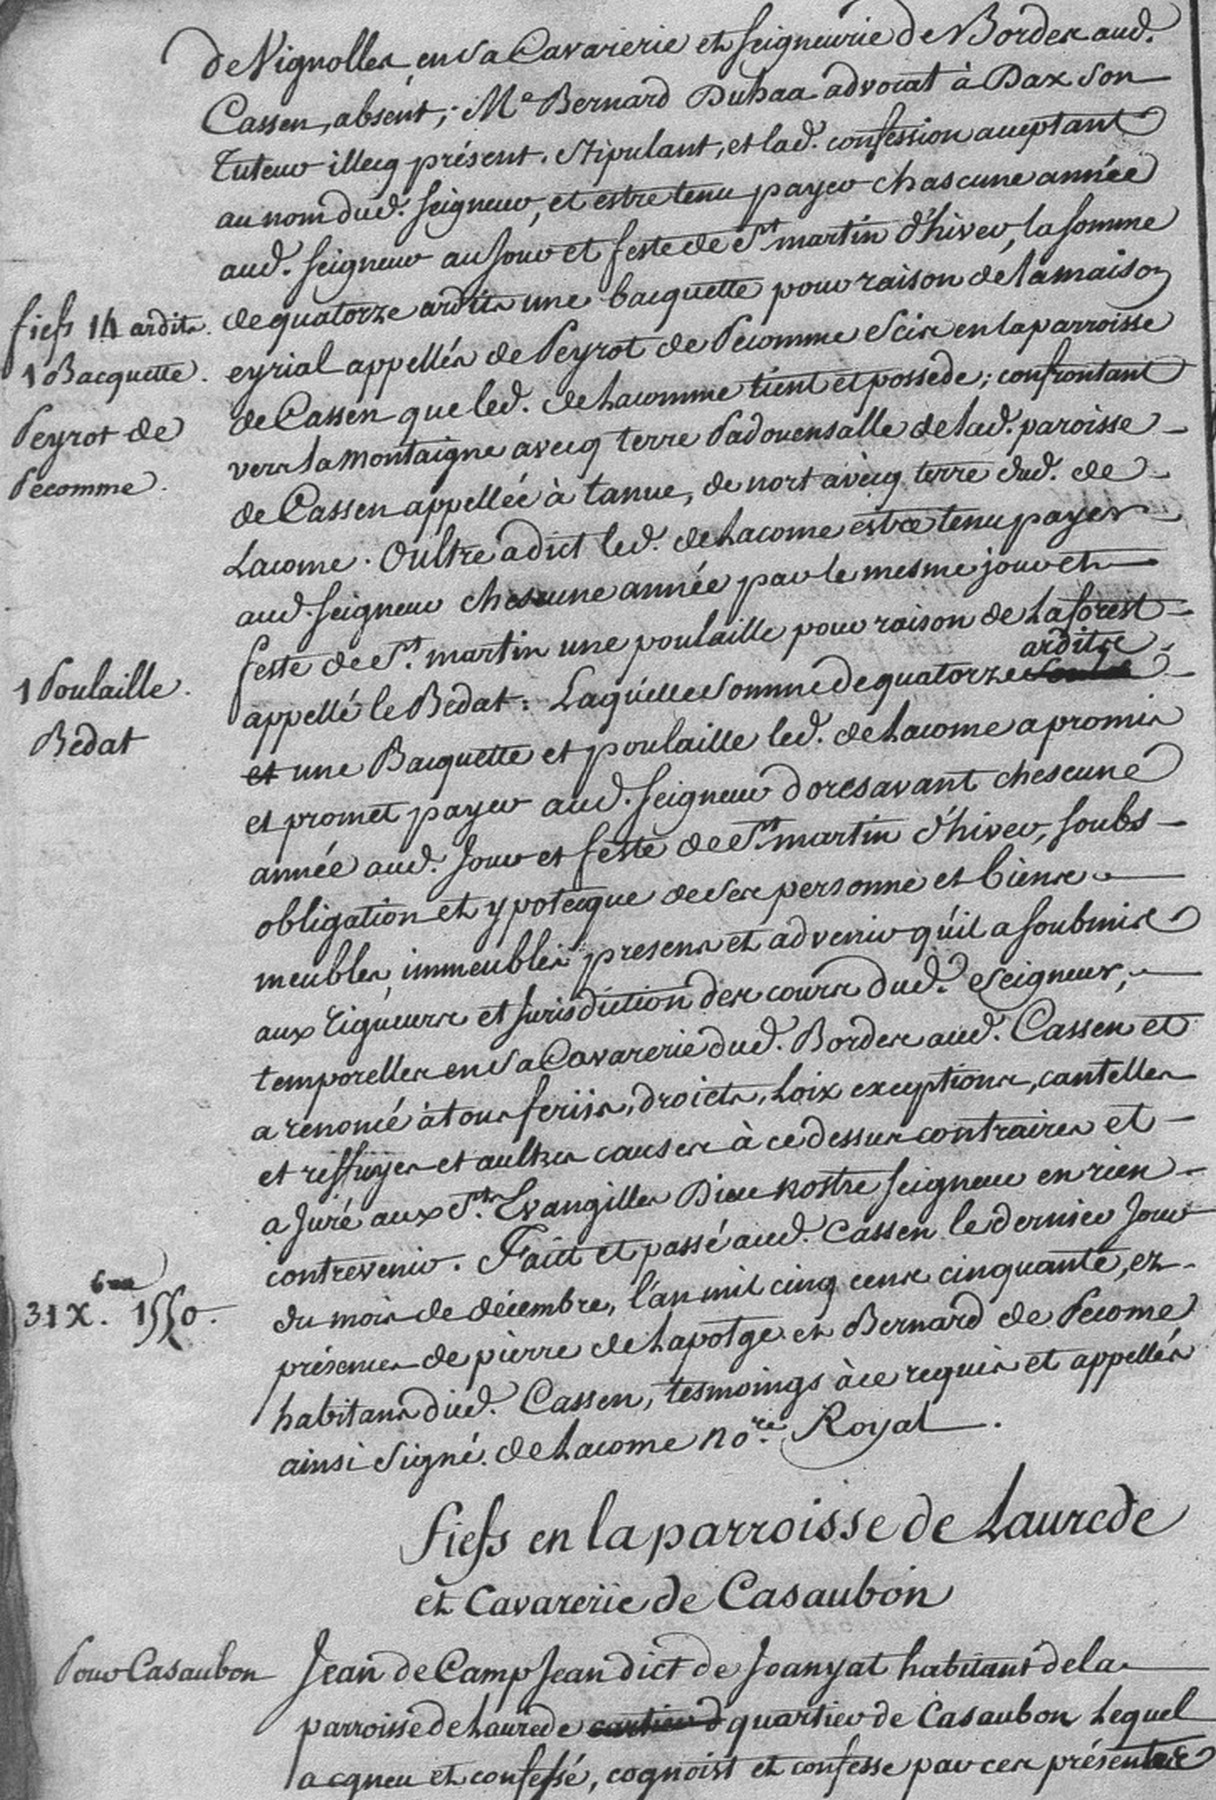 de Vignolles, en sa Cavarerie et seigneurie de Bordes aud.
Cassen, absent; Me Bernard Duhaa advocat à Dax son
tuteur illecq présent, stipulant, et lad. confession acceptant
au nom dud. seigneur, et estre tenu payer chascune année
aud. seigneur au jour et feste de St martin d'hiver, la somme
fiefs 14 ardits. de quatorze ardits une bacquette pour raison de la maison
1 Bacquette. eyrial appellés de Peyrot de Pecomme scis en la parroisse
Peyrot de de Cassen que led. de Lacomme tient et possede; confrontant
Pecomme. vers la montaigne avecq terre Padouensalle de lad. paroisse
de Cassen appellée à tanue, de nort avecq terre dud. de
Lacome. Oultre a dict led. de Lacome estre tenu payer
aud. seigneur chescune année par le mesme jour et
feste de St martin une poulaille pour raison de la forest
1 Poulaille. appellé le Bedat: Laquelle somme de quatorze ardits
Bedat et une Bacquette et poulaille led. de Lacome a promis
et promet payer aud. seigneur doresavant chescune
année aud. jour et feste de St martin d'hiver, soubs
obligation et ypotecque de ses personne et biens
meubles, immeubles presens et advenir qu'il a soubmis
aux rigueurs et jurisdiction des cours dud. seigneur,
temporelles en sa Cavarerie dud. Bordes aud. Cassen et
a renoncé à tous feriis, droicts, loix exceptions, cantelles
et reffuyes et aultres causes à ce dessus contraires et
a juré aux Sts Evangilles Dieu nostre seigneur en rien
contrevenir. Faict et passé aud. Cassen le dernier jour
31 Xbre 1550. du mois de décembre, l'an mil cinq cens cinquante, ez
présences de pierre de Lapotge et Bernard de Pecome
habitans dud. Cassen, tesmoings à ce requis et appellés
ainsi signé. de Lacome nore Royal.
fiefs en la parroisse de Laurede
et Cavarerie de Casaubon
Pour Casaubon Jean de Camp Jean dict de Joanyat habitant de la
parroisse de Laurede cartier d quartier de Casaubon Lequel
a cgneu et confessé, cognoist et confesse par ces présentes